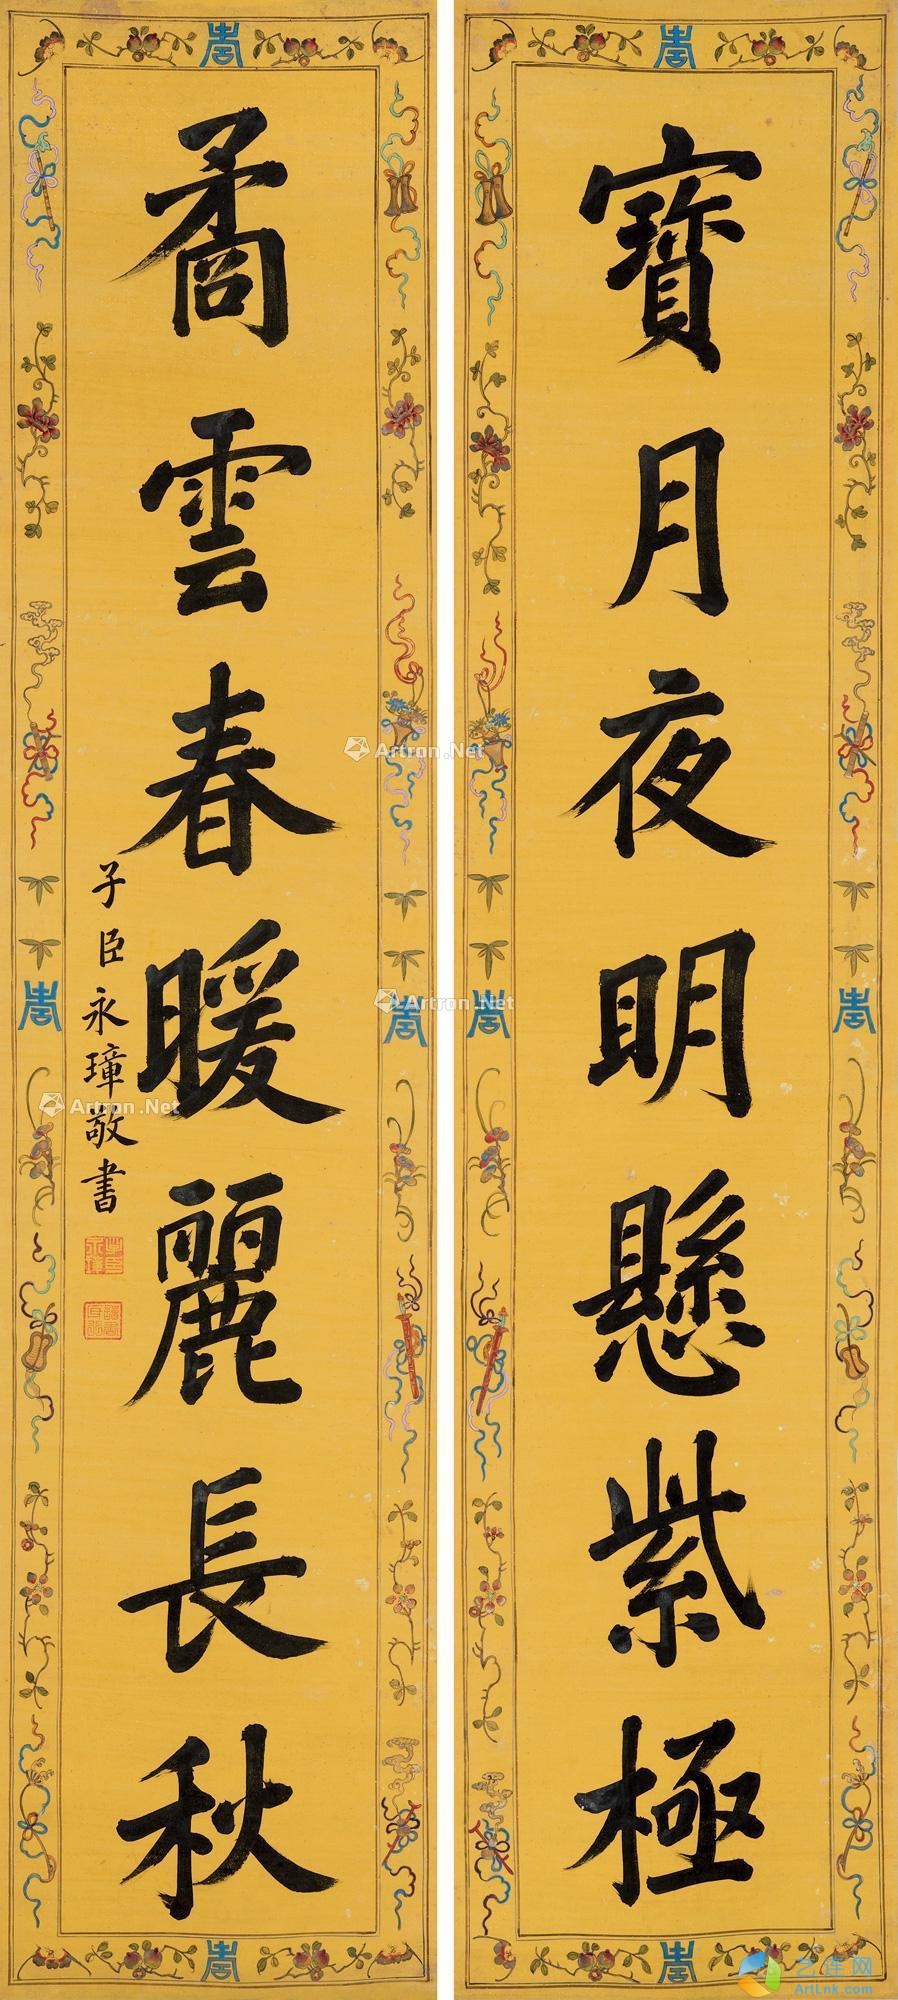 寶月夜明懸紫極
矞雲春暖麗長秋
子臣永璋敬書
Artron.Net
Artron.Net
Artron.Net
艺连网
ArtLnk.com